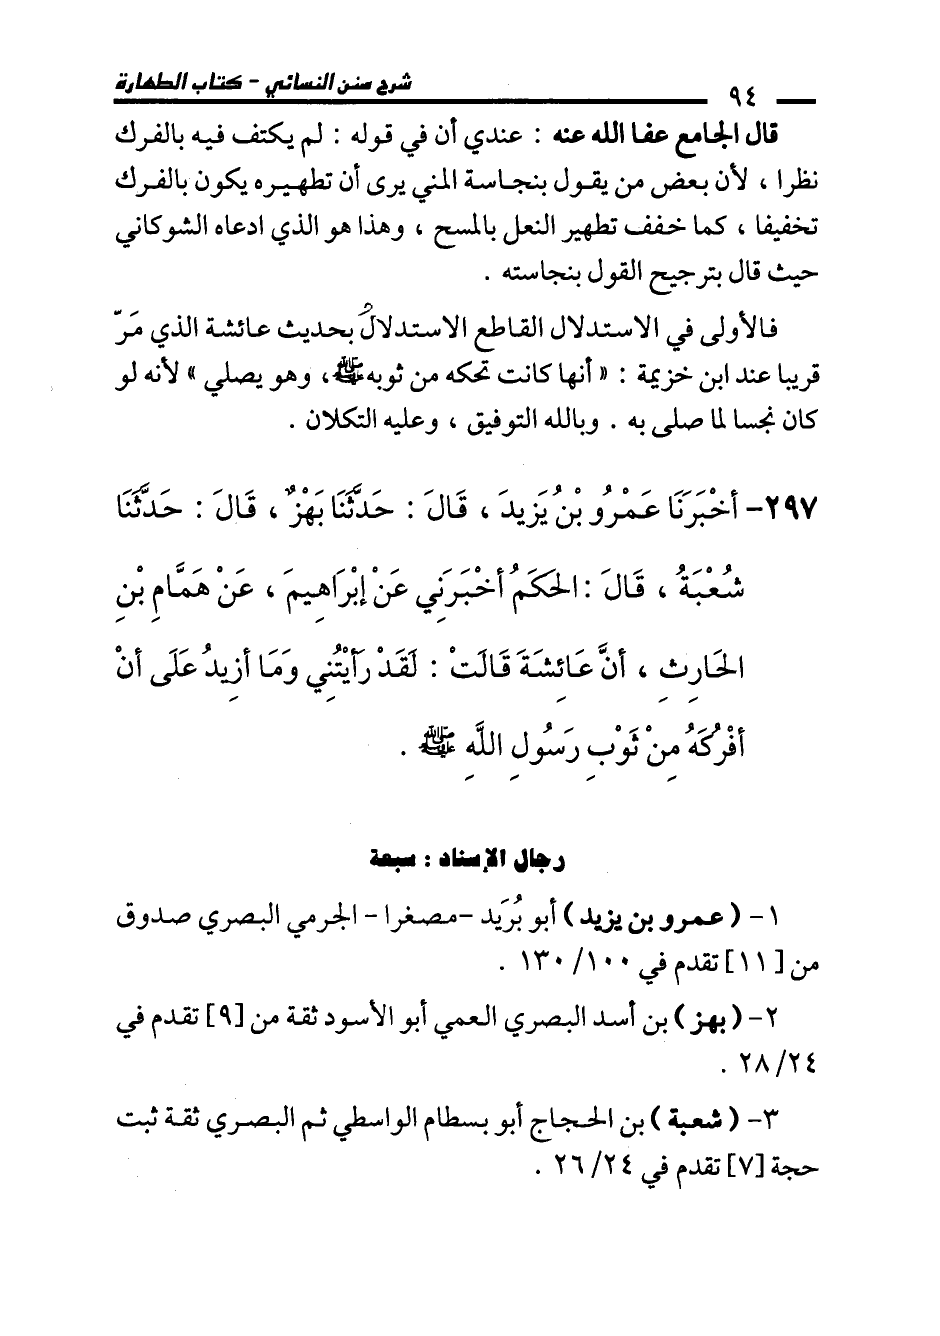 شرح سنن النسائي - كتاب الطهارة
٩٤
قال الجامع عفا الله عنه : عندي أن في قوله : لم يكتف فيه بالفرك
نظرا ، لأن بعض من يقول بنجاسة المني يرى أن تطهيره يكون بالفرك
تخفيفا ، كما خفف تطهير النعل بالمسح ، وهذا هو الذي ادعاه الشوكاني
حيث قال بترجيح القول بنجاسته .
فالأولى في الاستدلال القاطع الاستدلالُ بحديث عائشة الذي مَرّ
قريبا عند ابن خزيمة : « أنها كانت تحكه من ثوبه ﷺ ، وهو يصلي » لأنه لو
كان نجسا لما صلى به . وبالله التوفيق ، وعليه التكلان .
٢٩٧- أخْبَرَنَا عَمْرُو بْنُ يَزِيدَ ، قَالَ : حَدَّثَنَا بَهْزٌ ، قَالَ : حَدَّثَنَا
شُعْبَةُ ، قَالَ : الحَكَمُ أخْبَرَنِي عَنْ إبْرَاهِيمَ ، عَنْ هَمَّامِ بْنِ
الحَارِثِ ، أنَّ عَائِشَةَ قَالَتْ : لَقَدْ رَأيْتُنِي وَمَا أزِيدُ عَلَى أنْ
أفْرُكَهُ مِنْ ثَوْبِ رَسُولِ اللَّهِ ﷺ .
رجال الإسناد : سبعة
١- ( عمرو بن يزيد ) أبو بُرَيد -مصغرا- الجرمي البصري صدوق
من [١١] تقدم في ١٠٠/ ١٣٠ .
٢- ( بهز ) بن أسد البصري العمي أبو الأسود ثقة من [٩] تقدم في
٢٤/ ٢٨ .
٣- ( شعبة ) بن الحجاج أبو بسطام الواسطي ثم البصري ثقة ثبت
حجة [٧] تقدم في ٢٤/ ٢٦ .